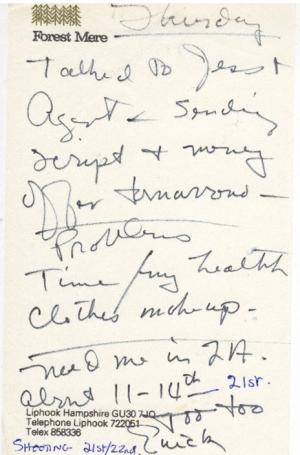 Thursday
Forest Mere
Talked to Jess +
Agent - Sending
script + money
offer tomorrow -
Problems
Time / my health
clothes make-up -
need me in LA.
about 11-14th 21st.
Liphook Hampshire GU30 7JQ
Telephone Liphook 722051
Telex 858336
too too
Quick
SHOOTING 21st/22nd.